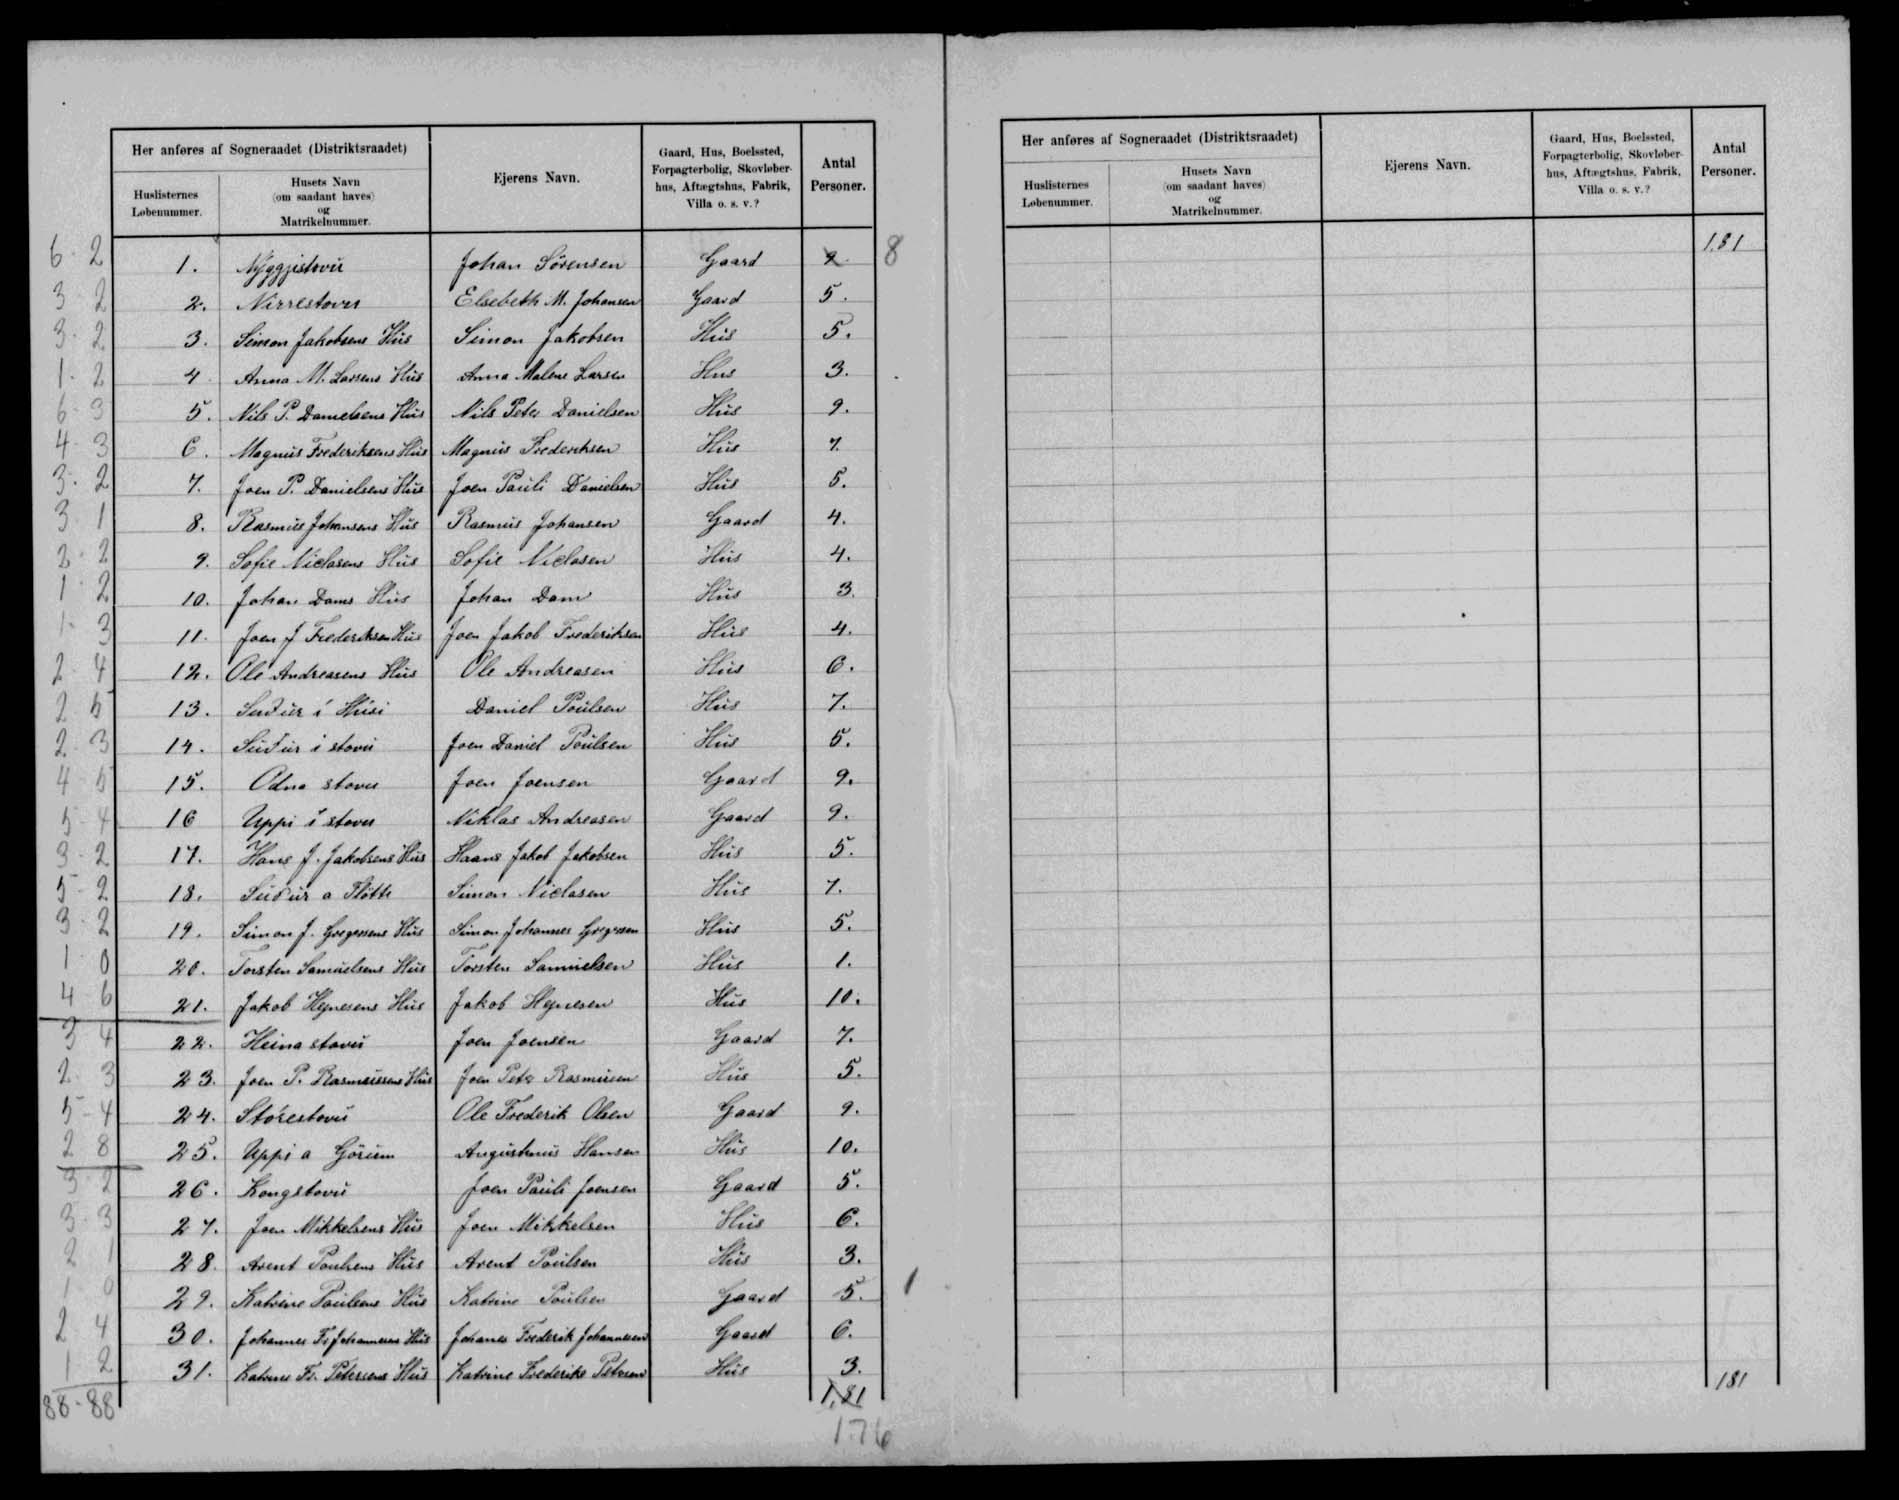 Her anføres af Sogneraadet (Distriktsraadet)
Huslisternes Løbenummer.
Husets Navn (om saadant haves) og Matrikelnummer.
Ejerens Navn.
Gaard, Hus, Boelssted, Forpagterbolig, Skovløberhus, Aftægtshus, Fabrik, Villa o. s. v.?
Antal Personer.
6 - 2 1. Nyggjistovu Johan Sörensen Gaard 9. 8
3 2 2. Nirrestovu Elsebeth M. Johansen Gaard 5.
3 - 2 3. Simon Jakobsens Hus Simon Jakobsen Hus 5.
1 - 2 4 Anna M. Larsens Hus Anna Malene Larsen Hus 3.
6 - 3 5. Nils P. Danielsens Hus Nils Peter Danielsen Hus 9.
4 - 3 6. Magnus Frederiksens Hus Magnus Frederiksen Hus 7.
3 - 2 7. Joen P. Danielsens Hus Joen Pauli Danielsen Hus 5.
3 1 8. Rasmus Johansens Hus Rasmus Johansen Gaard 4.
2 - 2 9. Sofie Niclasens Hus Sofie Niclasen Hus 4.
1 2 10. Johan Dams Hus Johan Dam Hus 3.
1 - 3 11. Joen J Frederiksen Hus Joen Jakob Frederiksen Hus 4.
2 - 4 12. Ole Andreasens Hus Ole Andreasen Hus 6.
2 5 13. Suður í Húsi Daniel Poulsen Hus 7.
2 - 3 14. Suður i stovu Joen Daniel Poulsen Hus 5.
4 - 5 15. Odna stovu Joen Joensen Gaard 9.
5 - 4 16 Uppi í stovu Niklas Andreasen Gaard 9.
3 - 2 17. Hans J. Jakobsens Hus Haans Jakob Jakobsen Hus 5.
5 - 2 18. Suður a Fløtti Simon Niclasen Hus 7.
3 - 2 19. Simon J. Gregersens Hus Simon Johannes Gregersen Hus 5.
1 0 20. Torsten Samuelsens Hus Torsten Samuelsen Hus 1.
4 6 21. Jakob Hejnesens Hus Jakob Hejnesen Hus 10.
3 4 22. Heinastovu Joen Joensen Gaard 7.
2 - 3 23. Joen P. Rasmussens Hus Joen Peter Rasmussen Hus 5.
5 - 4 24. Stórestovu Ole Frederik Olsen Gaard 9.
2 8 25. Uppi a Görum Augustinus Hansen Hus 10.
3 - 2 26. Kongstovu Joen Pauli Joensen Gaard 5.
3 - 3 27. Joen Mikkelsens Hus Joen Mikkelsen Hus 6.
2 1 28. Arent Poulsens Hus Arent Poulsen Hus 3.
1 0 29. Katrine Poulsens Hus Katrine Poulsen Gaard 5. 1
2 4 30. Johannes Fr Johannesens Hus Johanes Frederik Johannesen Gaard 6.
1 2 31. Katrine Fr. Petersens Hus Katrine Frederike Petersen Hus 3.
88 - 88 1,81
176
Her anføres af Sogneraadet (Distriktsraadet)
Huslisternes Løbenummer.
Husets Navn (om saadant haves) og Matrikelnummer.
Ejerens Navn.
Gaard, Hus, Boelssted, Forpagterbolig, Skovløberhus, Aftægtshus, Fabrik, Villa o. s. v.?
Antal Personer.
1,81
181